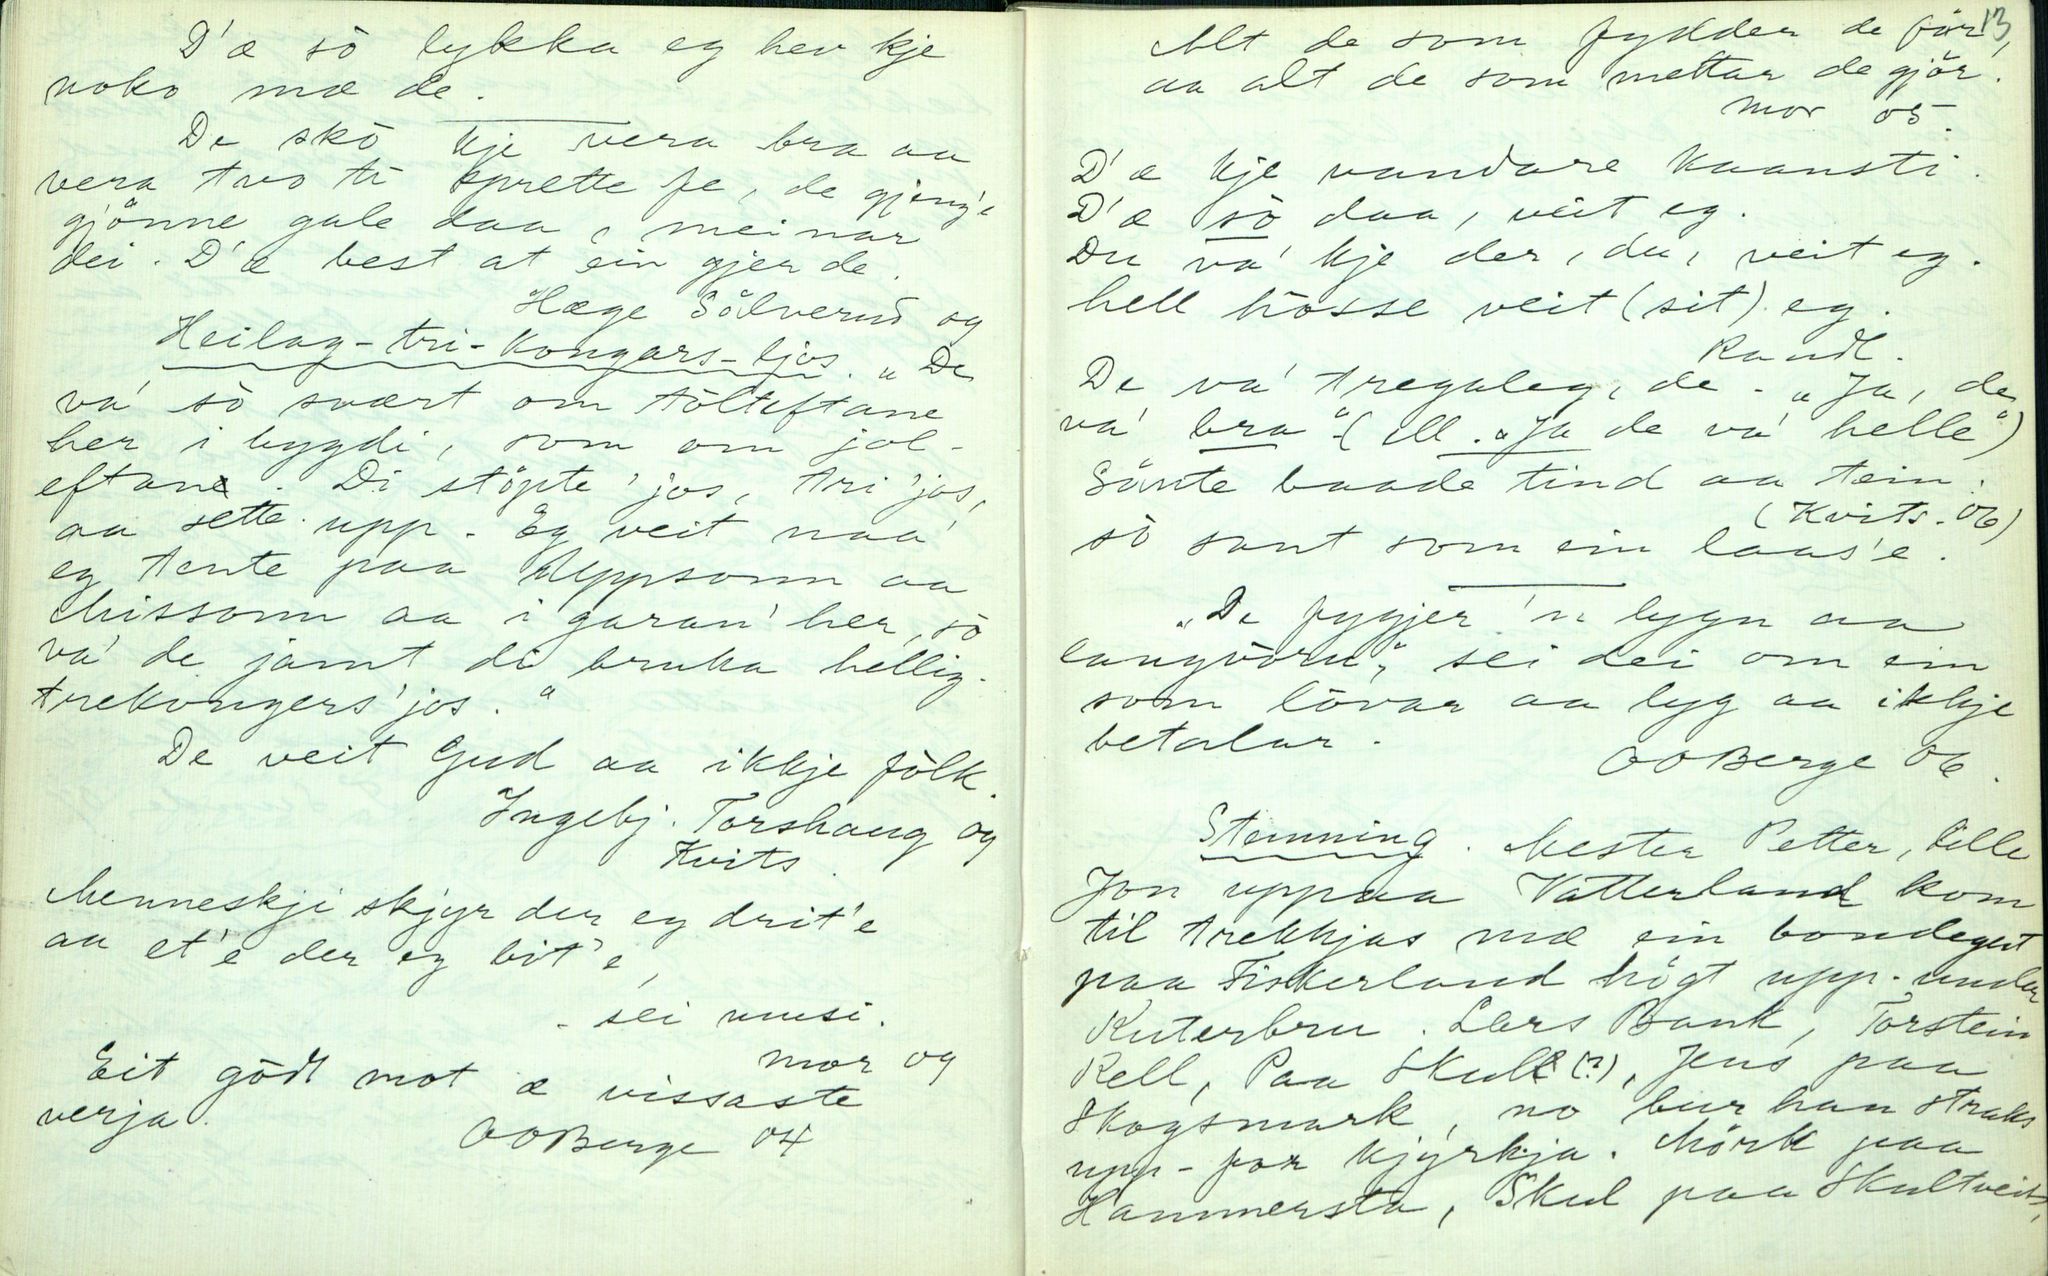 D'æ sò lykka eg hev kje
noko mæ de.
De skò kje vera bra aa
vera tvo ti sprette fe, de gjeng'e
gjönne gale daa, meinar
dei. D'æ best at ein gjer de.
Hæge Sölverud og
Heilag-tri-kongars-ljos. „De
va' sò svært om tòlteftane
her i bygdi, som om jol-
eftane. Di stöpte 'jos, tri 'jos,
aa sette upp. Eg veit naa'
eg tente paa Uppsonn aa
Missonn aa i garan' her, sò
va' de jamt di bruka hellig-
trekongers'jos."
De veit Gud aa ikkje fòlk.
Ingebj. Torshaug og
Kvits.
Menneskji skjyr der eg drit'e
aa et'e der eg bit'e,
- sei musi.
mor og
Eit gòdt mot æ vissaste
verja.
OOBerge 04
13
Alt de som fydder de för,
aa alt de som mettar de gjör.
mor 05.
D'æ kje vandare kaansti.
D'æ sò daa, veit eg.
Du va' kje der, du, veit eg.
hell hòsse veit (sit) eg.
Randl.
De va' tregaleg, de. „Ja, de
va' bra". (ell. „Ja de va' helle")
Sönte baade tind aa tein.
(Kvits. 06)
sò sant som ein laas'e.
„De fygjer 'n lygn aa
langvòru", sei dei om ein
som lòvar aa lyg aa ikkje
betalar.
OOBerge 06.
Stemning. Mester Petter, lille
Jon uppaa Vatterland kom
til trekkjas mæ ein bondegut
paa Fiskerland högt upp-under
Kuterbru. Lars Bank, Torstein
Rell, Paa Skull (?), Jens paa
Skogsmark, no bur han straks
upp-for kjyrkja. Mörk paa
Hammersta, Skul paa Skultveit,